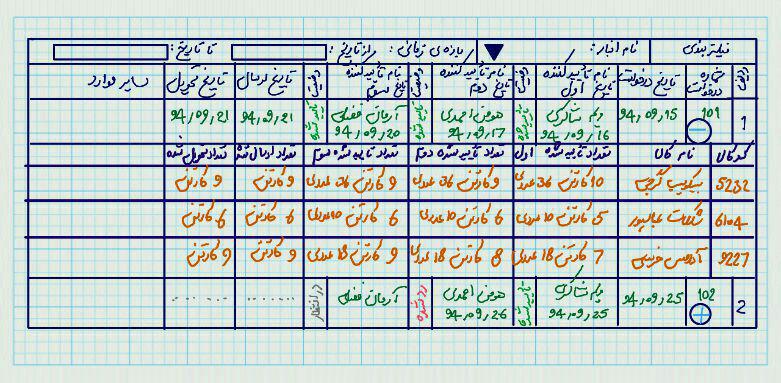 فیلتر بندی نام انبار: بازه ی زمانی: از تاریخ: تا تاریخ:
ردیف شماره درخواست تاریخ درخواست نام تأیید کننده اول تاریخ وضعیت نام تأیید کننده دوم تاریخ وضعیت نام تأیید کننده سوم تاریخ وضعیت تاریخ ارسال تاریخ تحویل سایر موارد
1 101 94,09,15 شاکری 94,09,16 تایید شده هومن احمدی 94,09,17 تایید شده آرمان فضلی 94,09,20 تایید شده 94,09,21 94,09,21
کد کالا نام کالا تعداد تایید شده اول تعداد تایید شده دوم تعداد تایید شده سوم تعداد ارسال شده تعداد تحویل شده
5232 گرجی 10 کارتن 36 عددی 9 کارتن 36 عددی 9 کارتن 36 عددی 9 کارتن 9 کارتن
6104 5 کارتن 10 عددی 6 کارتن 10 عددی 6 کارتن 10 عددی 6 کارتن 6 کارتن
9227 آدامس خرسی 7 کارتن 18 عددی 8 کارتن 18 عددی 9 کارتن 18 عددی 9 کارتن 9 کارتن
2 102 94,09,25 شاکری 94,09,25 تایید شده هومن احمدی 94,09,26 رد شده آرمان فضلی در انتظار ........ ........